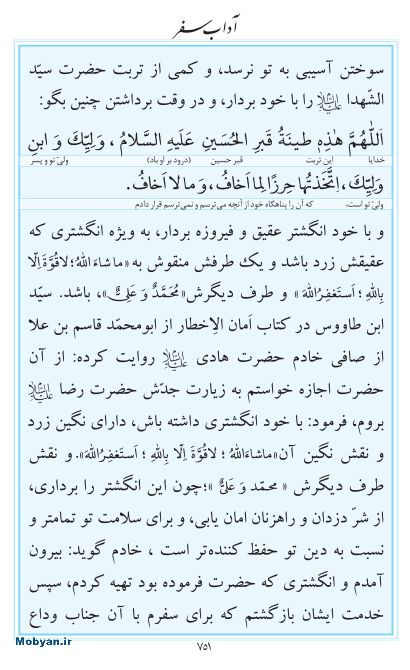 آداب سفر
سوختن آسیبی به تو نرسد، و کمی از تربت حضرت سیّد
الشّهدا علیه‌السلام را با خود بردار، و در وقت برداشتن چنین بگو:
اَللّٰهُمَّ هٰذِهِ طینَةُ قَبرِ الحُسَینِ عَلَیهِ السَّلامُ ، وَلِیِّكَ وَ ابنِ
خدایا این تربت قبر حسین (درود بر او باد) ولیّ تو و پسر
وَلِیِّكَ ،اِتَّخَذتُها حِرزًا لِما اَخافُ، وَ ما لا اَخافُ.
ولیّ تو است، که آن را پناهگاه خود از آنچه می‌ترسم و نمی‌ترسم قرار دادم
و با خود انگشتر عقیق و فیروزه بردار، به ویژه انگشتری که
عقیقش زرد باشد و یك طرفش منقوش به «ماشاءَ اللهُ؛ لاقُوَّةَ اِلّا
بِاللهِ ؛ اَستَغفِرُاللهَ » و طرف دیگرش «مُحَمَّدٌ وَ عَلِیٌّ»، باشد. سیّد
ابن طاووس در کتاب اَمان الاِخطار از ابومحمّد قاسم بن علا
از صافی خادم حضرت هادی علیه‌السلام روایت کرده: از آن
حضرت اجازه خواستم به زیارت جدّش حضرت رضا علیه‌السلام
بروم، فرمود: با خود انگشتری داشته باش، دارای نگین زرد
و نقش نگین آن«ماشاءَاللهُ ؛ لاقُوَّةَ اِلّا بِاللهِ ؛ اَستَغفِرُاللهَ».و نقش
طرف دیگرش « محمّد وَ عَلِیٌّ »؛چون این انگشتر را برداری،
از شرّ دزدان و راهزنان امان یابی، و برای سلامت تو تمامتر و
نسبت به دین تو حفظ کننده‌تر است ، خادم گوید: بیرون
آمدم و انگشتری که حضرت فرموده بود تهیه کردم، سپس
خدمت ایشان بازگشتم که برای سفرم با آن جناب وداع
Mobyan.ir
۷۵۱